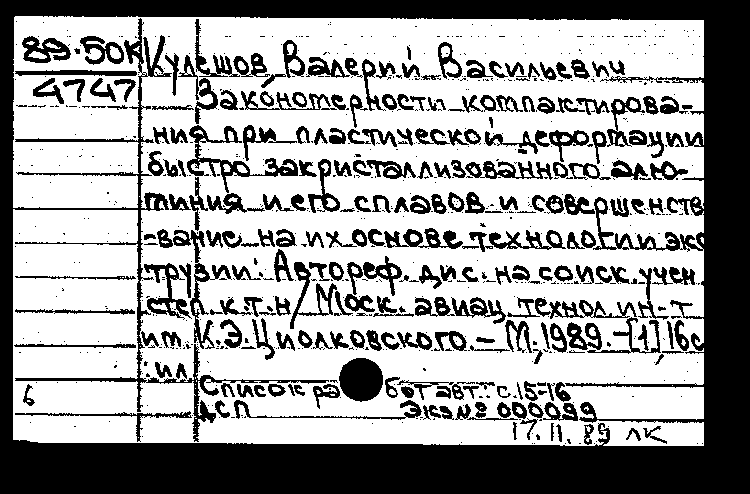 89-50К Кулешов Валерий Васильевич
4747 Закономерности компактирова-
ния при пластической деформации
быстро закристаллизованного алю-
миния и его сплавов и совершенств
-вание на их основе технологии экс
трузии: Автореф. дис. на соиск. учен.
степ. к.т.н / Моск. авиац. технол. ин-т
им. К.Э.Циолковского. – М., 1989. – [1], 16с
: ил
Список работ авт.: с.15-16
6 ДСП Экз № 000099
17.11.89 лк